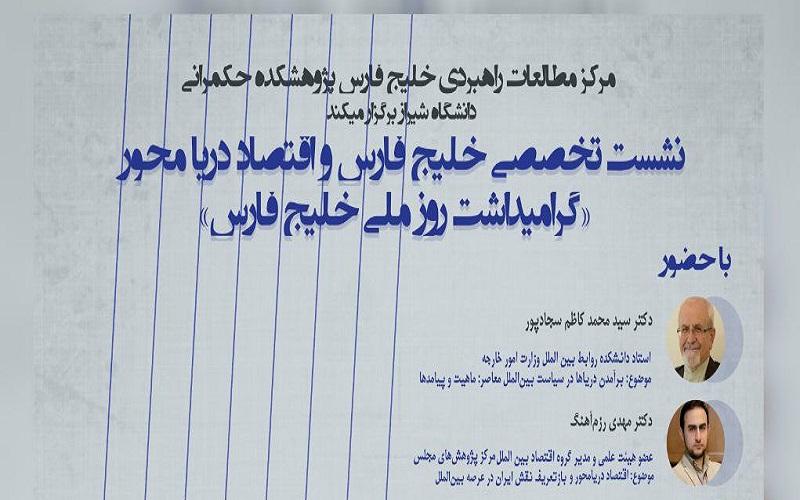 مرکز مطالعات راهبردی خلیج فارس پژوهشکده حکمرانی
دانشگاه شیراز برگزار میکند
نشست تخصصی خلیج فارس و اقتصاد دریا محور
«گرامیداشت روز ملی خلیج فارس»
با حضور
دکتر سید محمد کاظم سجادپور
استاد دانشکده روابط بین الملل وزارت امور خارجه
موضوع: برآمدن دریاها در سیاست بین‌الملل معاصر: ماهیت و پیامدها
دکتر مهدی رزم‌آهنگ
عضو هیئت علمی و مدیر گروه اقتصاد بین الملل مرکز پژوهش‌های مجلس
موضوع: اقتصاد دریامحور و بازتعریف نقش ایران در عرصه بین‌الملل